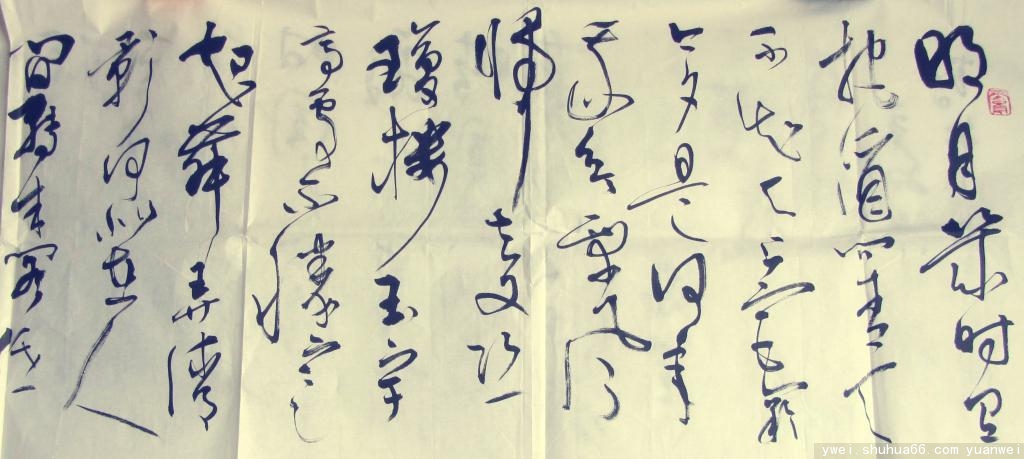 明月幾时有
把酒问青天
不知天上宫阙
今夕是何年
我欲乘风
歸去又恐
瓊樓玉宇
高處不勝寒
起舞弄清
影何似在人
间轉朱阁低
ywei.shuhua66.com yuanwei